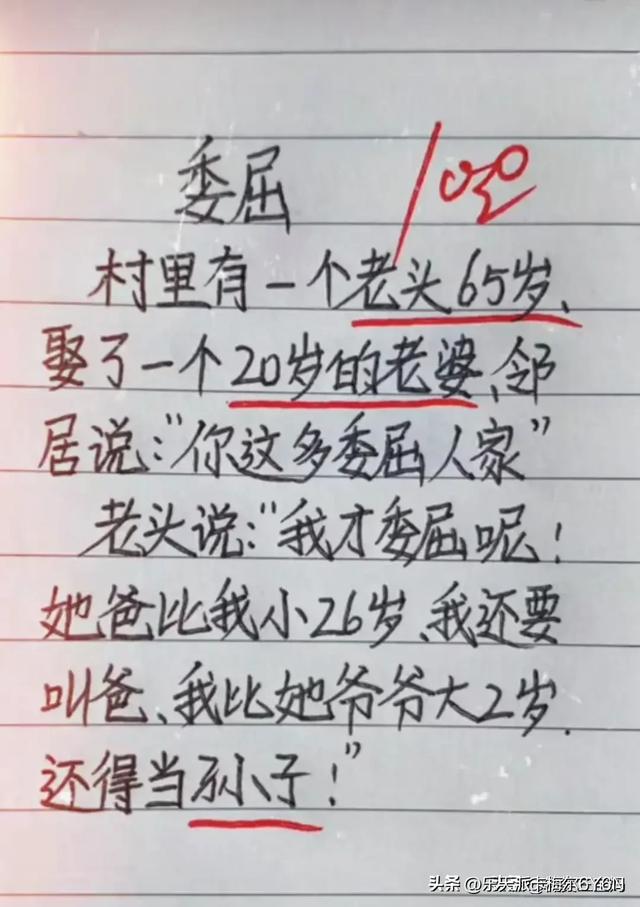 委屈
100
村里有一个老头65岁、
娶了一个20岁的老婆、邻
居说:"你这多委屈人家"
老头说:"我才委屈呢!
她爸比我小26岁、我还要
叫爸、我比她爷爷大2岁.
还得当孙小子!"
头条